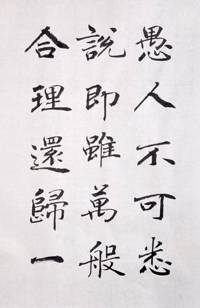 愚人不可悉
說即雖萬般
合理還歸一